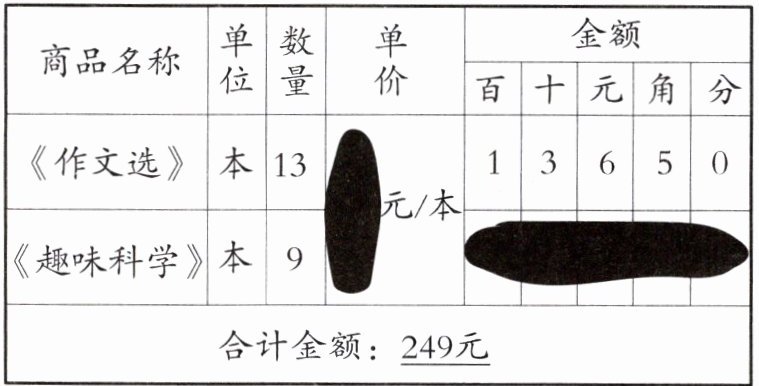 商品名称 单位 数量 单价 金额
百 十 元 角 分
《作文选》 本 13 元/本 1 3 6 5 0
《趣味科学》 本 9
合计金额：249元